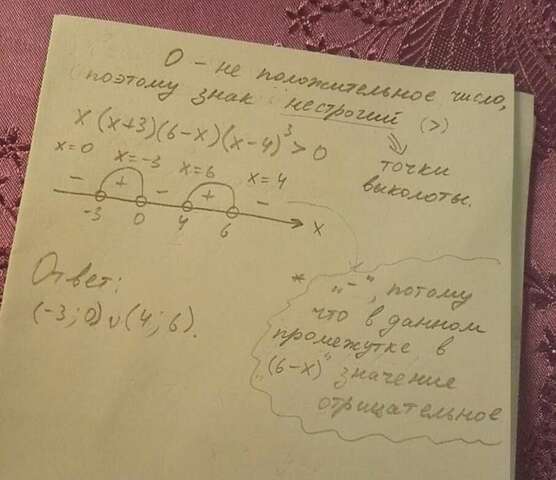 О - не положительное число,
поэтому знак нестрогий (>)
x(x+3)(6-x)(x-4)³>0
x=0 x=-3 x=6 x=4
точки
выколоты.
- + - + -
-3 0 4 6 x
Ответ:
(-3;0)∪(4;6).
* „-", потому
что в данном
промежутке в
„(6-x)" значение
отрицательное